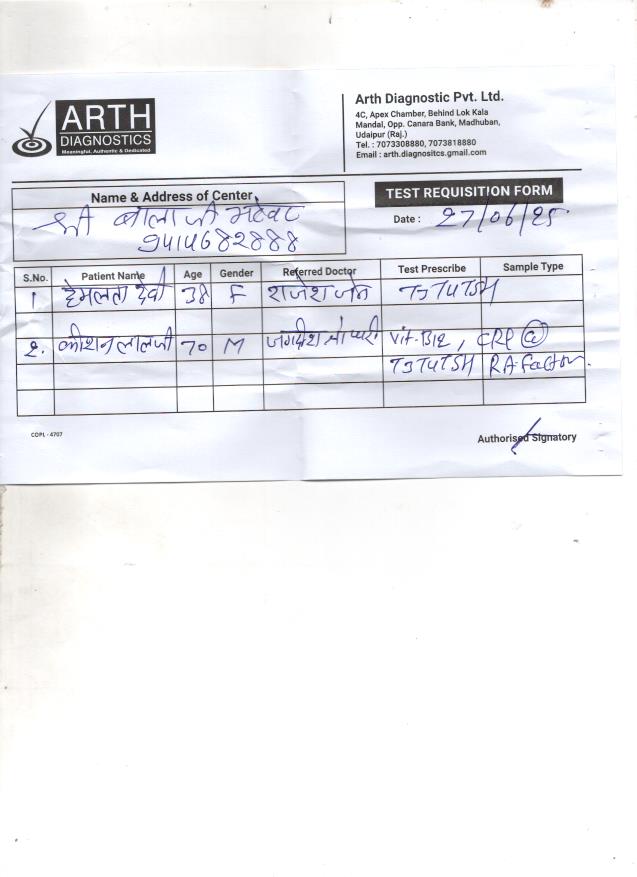 ARTH
DIAGNOSTICS
Meaningful, Authentic & Dedicated
Arth Diagnostic Pvt. Ltd.
4C, Apex Chamber, Behind Lok Kala
Mandal, Opp. Canara Bank, Madhuban,
Udaipur (Raj.)
Tel. : 7073308880, 7073818880
Email : arth.diagnositcs.gmail.com
TEST REQUISITION FORM
Name & Address of Center
Date : 27/06/25
श्री बालाजी भटेवर
9414682888
S.No. Patient Name Age Gender Referred Doctor Test Prescribe Sample Type
1 हेमलता देवी 38 F राजेश जैन T3T4TSH
2. कीशनलालजी 70 M जगदीश Vit-B12, CRP Q
T3T4TSH RA-factor.
CDPL - 4707
Authorised Signatory